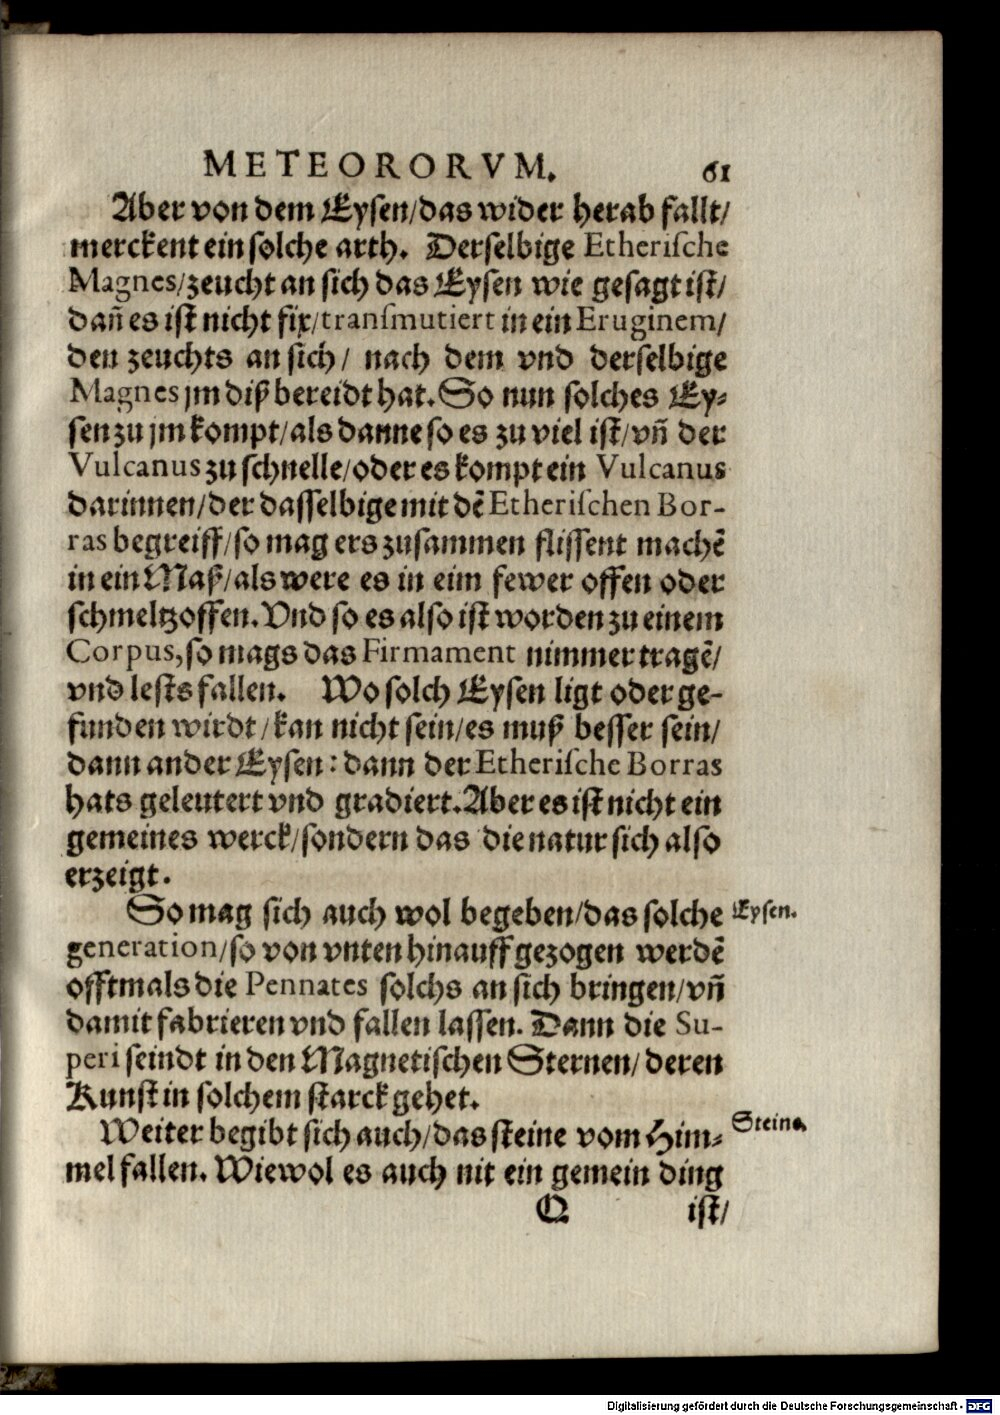 METEORORVM. 61
Aber von dem Eysen/das wider herab fallt/
merckent ein solche arth. Derselbige Etherische
Magnes/zeucht an sich das Eysen wie gesagt ist/
dañ es ist nicht fix/transmutiert in ein Eruginem/
den zeuchts an sich/ nach dem vnd derselbige
Magnes jm diß bereidt hat. So nun solches Ey-
sen zu jm kompt/als danne so es zu viel ist/vñ der
Vulcanus zu schnelle/oder es kompt ein Vulcanus
darinnen/der dasselbige mit dẽ Etherischen Bor-
ras begreiff/so mag ers zusammen flissent machẽ
in ein Maß/als were es in eim fewer offen oder
schmeltzoffen. Vnd so es also ist worden zu einem
Corpus, so mags das Firmament nimmer tragẽ/
vnd lests fallen. Wo solch Eysen ligt oder ge-
funden wirdt/kan nicht sein/es muß besser sein/
dann ander Eysen: dann der Etherische Borras
hats geleutert vnd gradiert. Aber es ist nicht ein
gemeines werck/sondern das die natur sich also
erzeigt.
So mag sich auch wol begeben/das solche
Eysen.
generation/so von vnten hinauff gezogen werdẽ
offtmals die Pennates solchs an sich bringen/vñ
damit fabrieren vnd fallen lassen. Dann die Su-
peri seindt in den Magnetischen Sternen/deren
Kunst in solchem starck gehet.
Weiter begibt sich auch/das steine vom Him-
Steine.
mel fallen. Wiewol es auch nit ein gemein ding
Q ist/
Digitalisierung gefördert durch die Deutsche Forschungsgemeinschaft - DFG